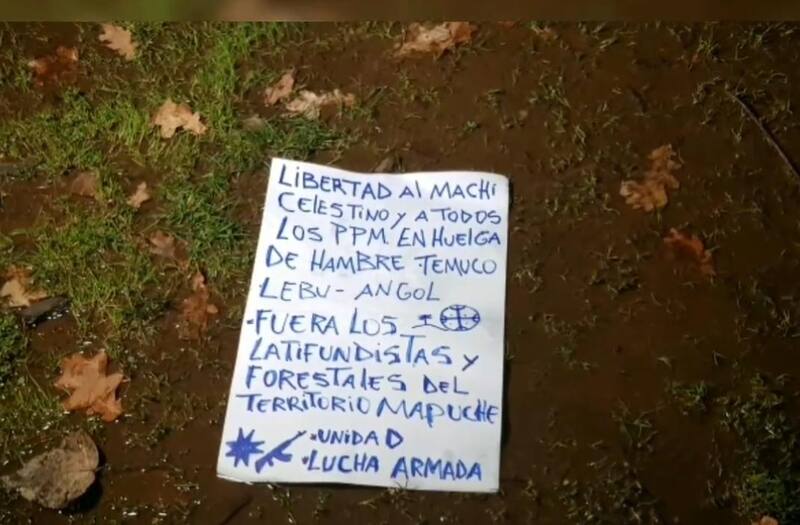 LIBERTAD Al MACHi
CELESTINO y A TODOS
LOS PPM. EN HUElGA
DE HAMBRE TEMUCO
LEBU - ANGOL
-FUERA LOS
LATIFUNDISTAS y
FORESTALES DEL
TERRITORIO MAPUCHE
•UNIDAD
•LUCHA ARMADA